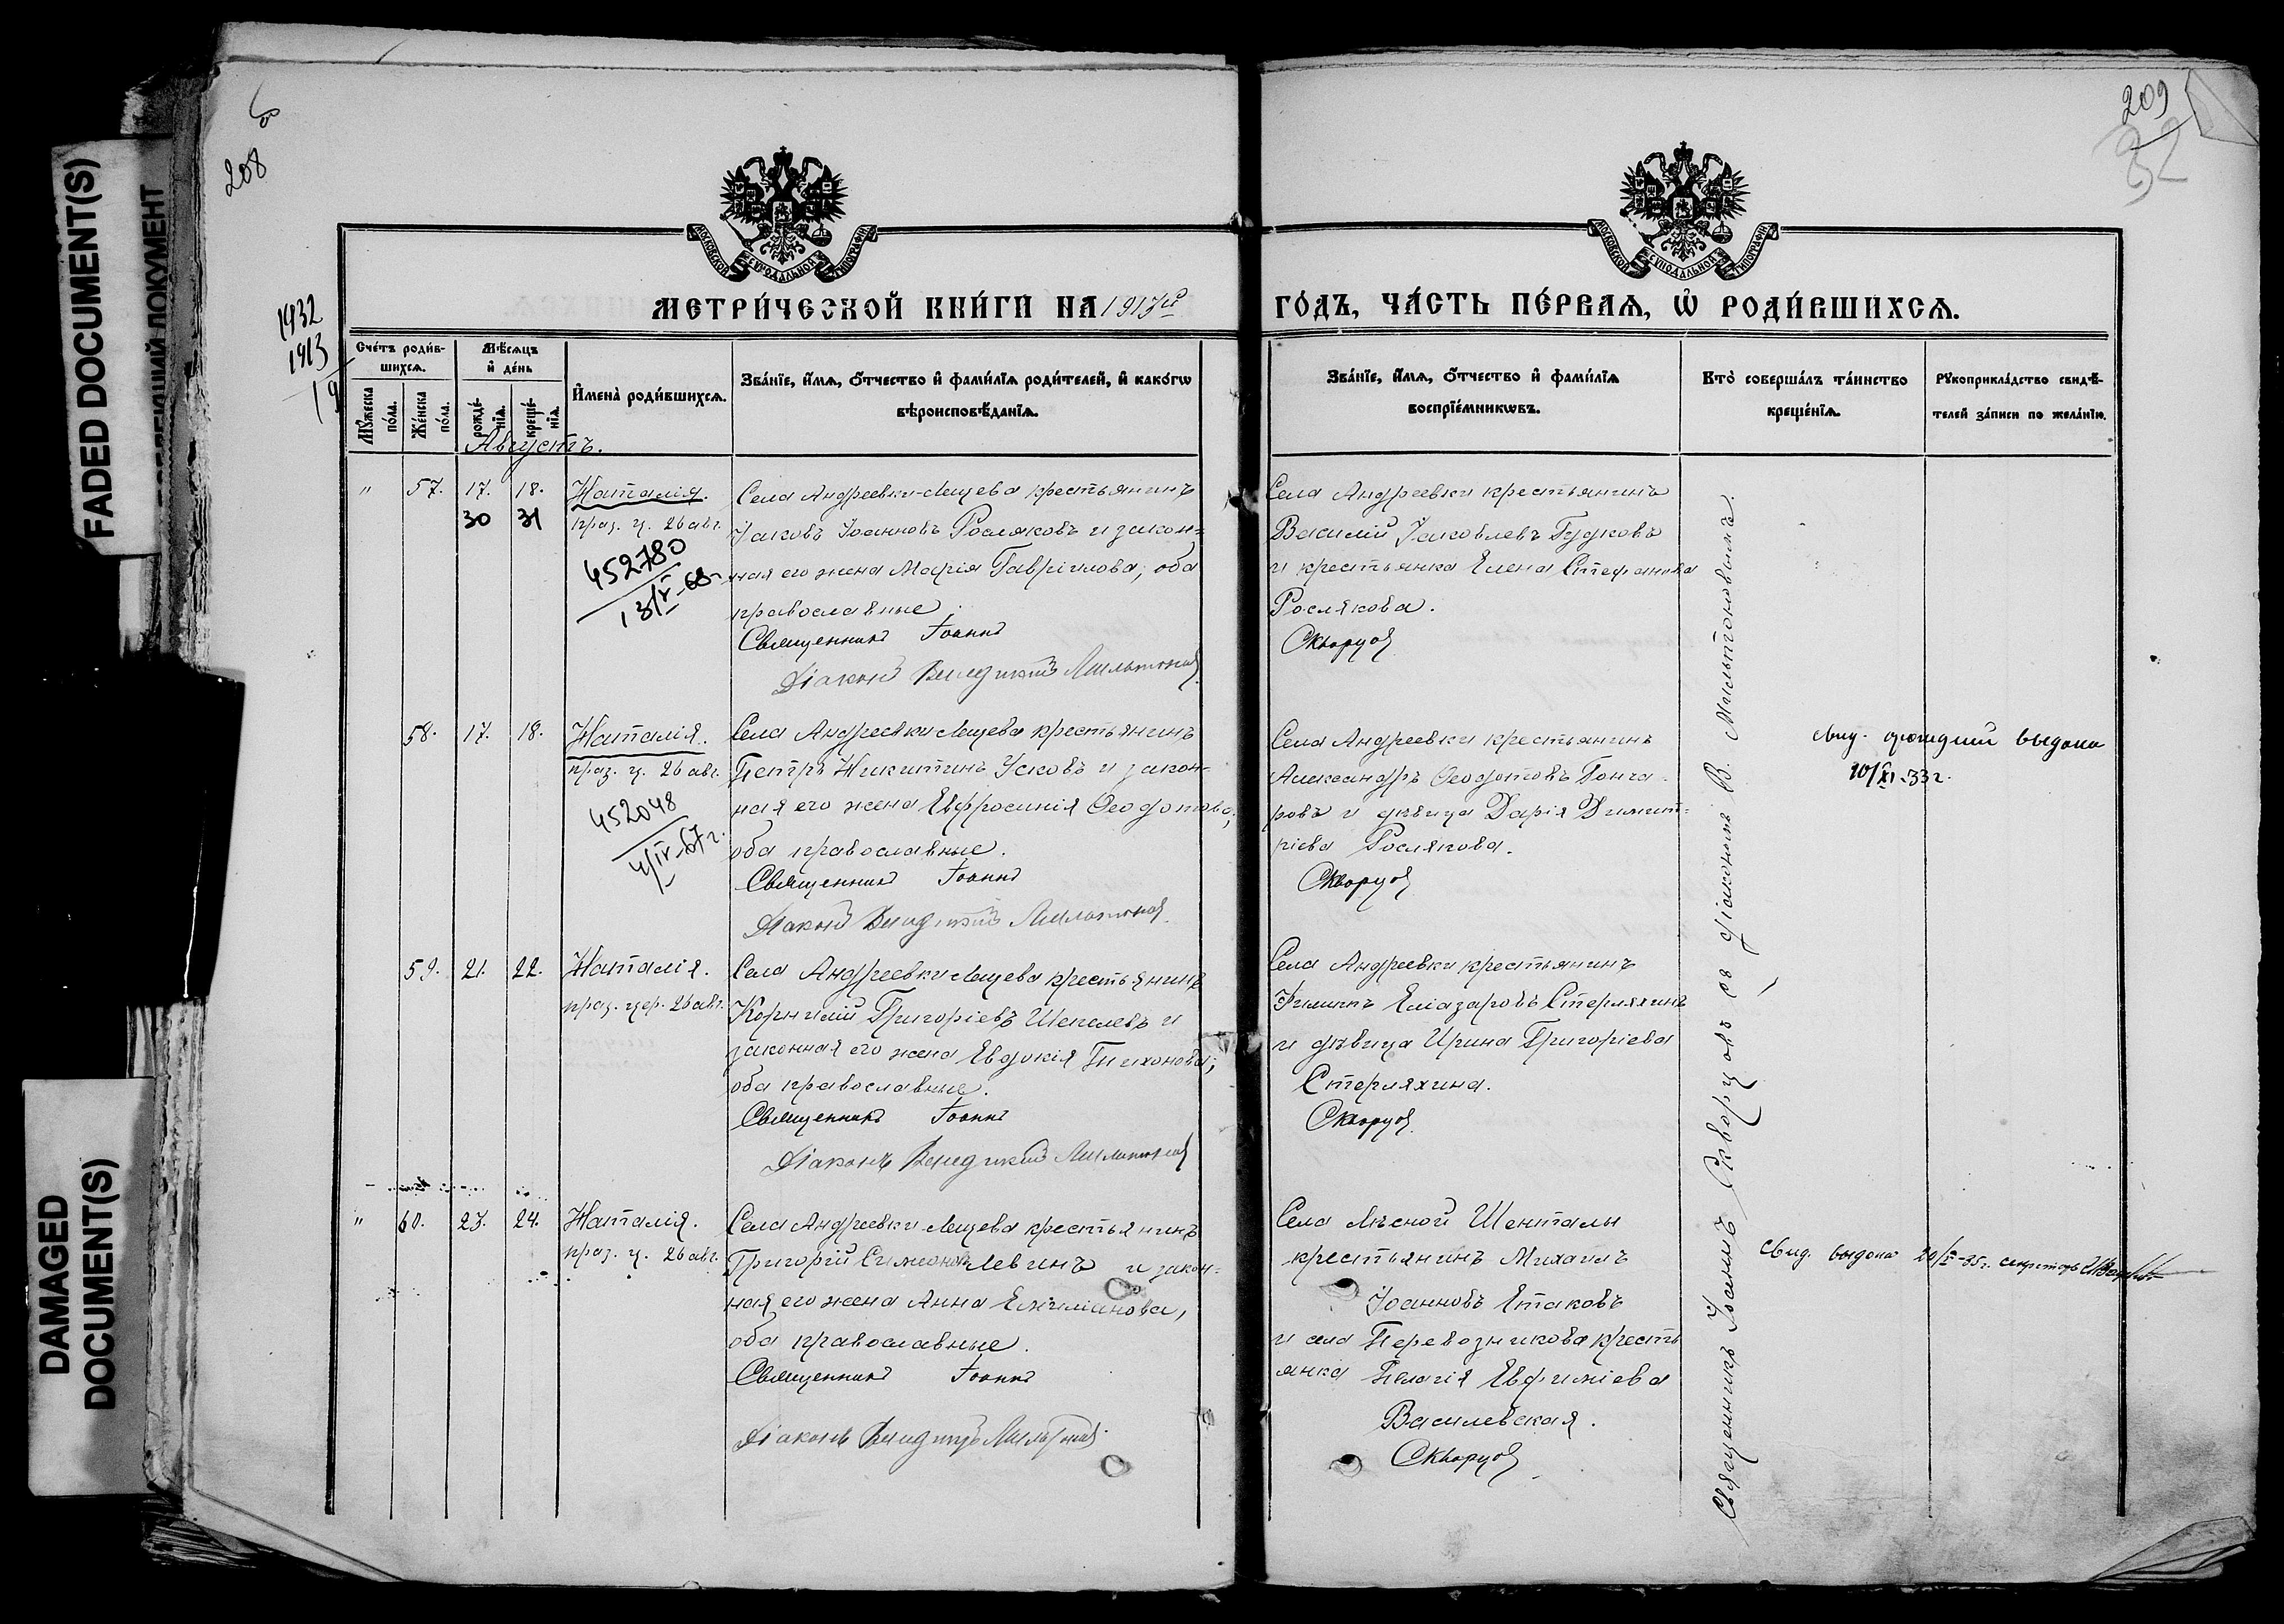 FADED DOCUMENT(S)
DAMAGED
DOCUMENT(S)
208
209
32
1932
1913
МОСКОВСКОЙ СѴНОДАЛЬНОЙ ТИПОГРАФІИ
МОСКОВСКОЙ СѴНОДАЛЬНОЙ ТИПОГРАФІИ
МЕТРИ́ЧЕСКОЙ КНИ́ГИ НА 1913й
ГО́ДЪ, ЧА́СТЬ ПЕ́РВАѦ, Ѽ РОДИ́ВШИХСѦ.
Сче́тъ роди́в-
шихсѧ.
Мѣ́сѧцъ
и҆ де́нь
Мꙋ́жеска
по́ла.
Же́нска
по́ла.
рожде́-
нїѧ.
креще́-
нїѧ.
И҆мена̀ роди́вшихсѧ.
Зва́нїе, и҆́мѧ, ѻ҆́тчество и҆ фами́лїѧ роди́телей, и҆ како́гѡ
вѣроисповѣ́данїѧ.
Зва́нїе, и҆́мѧ, ѻ҆́тчество и҆ фами́лїѧ
воспрїе́мникѡвъ.
Кто̀ соверша́лъ та́инство
креще́нїѧ.
Рꙋкоприкла́дство свидѣ́-
телей за́писи по жела́нїю.
Августъ.
" 57. 17. 18. Наталія.
30 31 праз. ц. 26 авг.
452780
13/V-68
Села Андреевки-Лещева крестьянинъ
Іаковъ Іоанновъ Росляковъ и закон-
ная его жена Марія Гавріилова, оба
православные.
Священникъ Іоаннъ
Діаконъ Венедиктъ Мильтоновъ
Села Андреевки крестьянинъ
Василій Іаковлевъ Гудковъ
и крестьянка Елена Стефанова
Рослякова.
Скворцовъ
58. 17. 18. Наталія.
праз. ц. 26 авг.
452048
4/IV-67г.
Села Андреевки Лещева крестьянинъ
Петръ Никитинъ Усковъ и закон-
ная его жена Евфросинія Ѳеодотова,
оба православные.
Священникъ Іоаннъ
Діаконъ Венедиктъ Мильтоновъ
Села Андреевки крестьянинъ
Александръ Ѳеодотовъ Гонча-
ровъ и дѣвица Дарія Димит-
ріева Рослякова.
Скворцовъ
выдано
10/XI-33г.
59. 21. 22. Наталія.
праз. цер. 26 авг.
Села Андреевки Лещева крестьянинъ
Корнилій Григоріевъ Шекалевъ и
законная его жена Евдокія Тихонова;
оба православные.
Священникъ Іоаннъ
Діаконъ Венедиктъ Мильтоновъ
Села Андреевки крестьянинъ
Филиппъ Еліазаровъ Стерляхинъ
и дѣвица Ирина Григоріева
Стерляхина.
Скворцовъ
" 60. 23. 24. Наталія.
праз. ц. 26 авг.
Села Андреевки Лещева крестьянинъ
Григорій Симеоновъ Левинъ и закон-
ная его жена Анна Емиліанова,
оба православные.
Священникъ Іоаннъ
Діаконъ Венедиктъ Мильтоновъ
Села Лѣсной Шенталы
крестьянинъ Михаилъ
Іоанновъ Етаковъ
и села Перевозникова кресть
янка Пелагія Евфиміева
Василевская.
Скворцовъ
Свид. выдано 20/X-35г. секретарь
Священникъ Іоаннъ Скворцовъ съ діакономъ В. Мильтоновымъ.